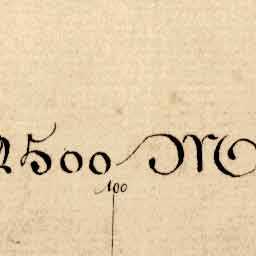 2500 M
100